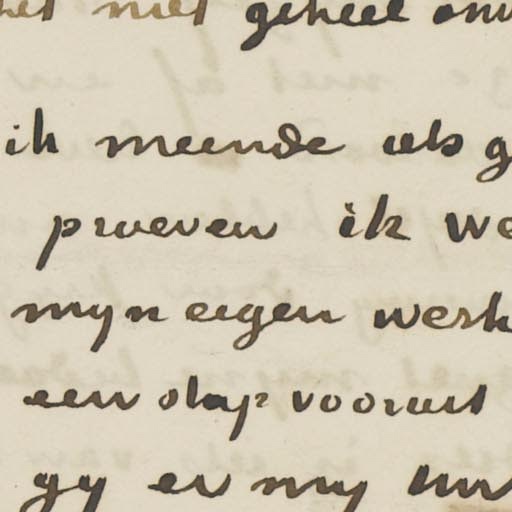 het niet geheel
ik meende als
proeven ik
myn eigen werk
een stap vooruit
gy er my